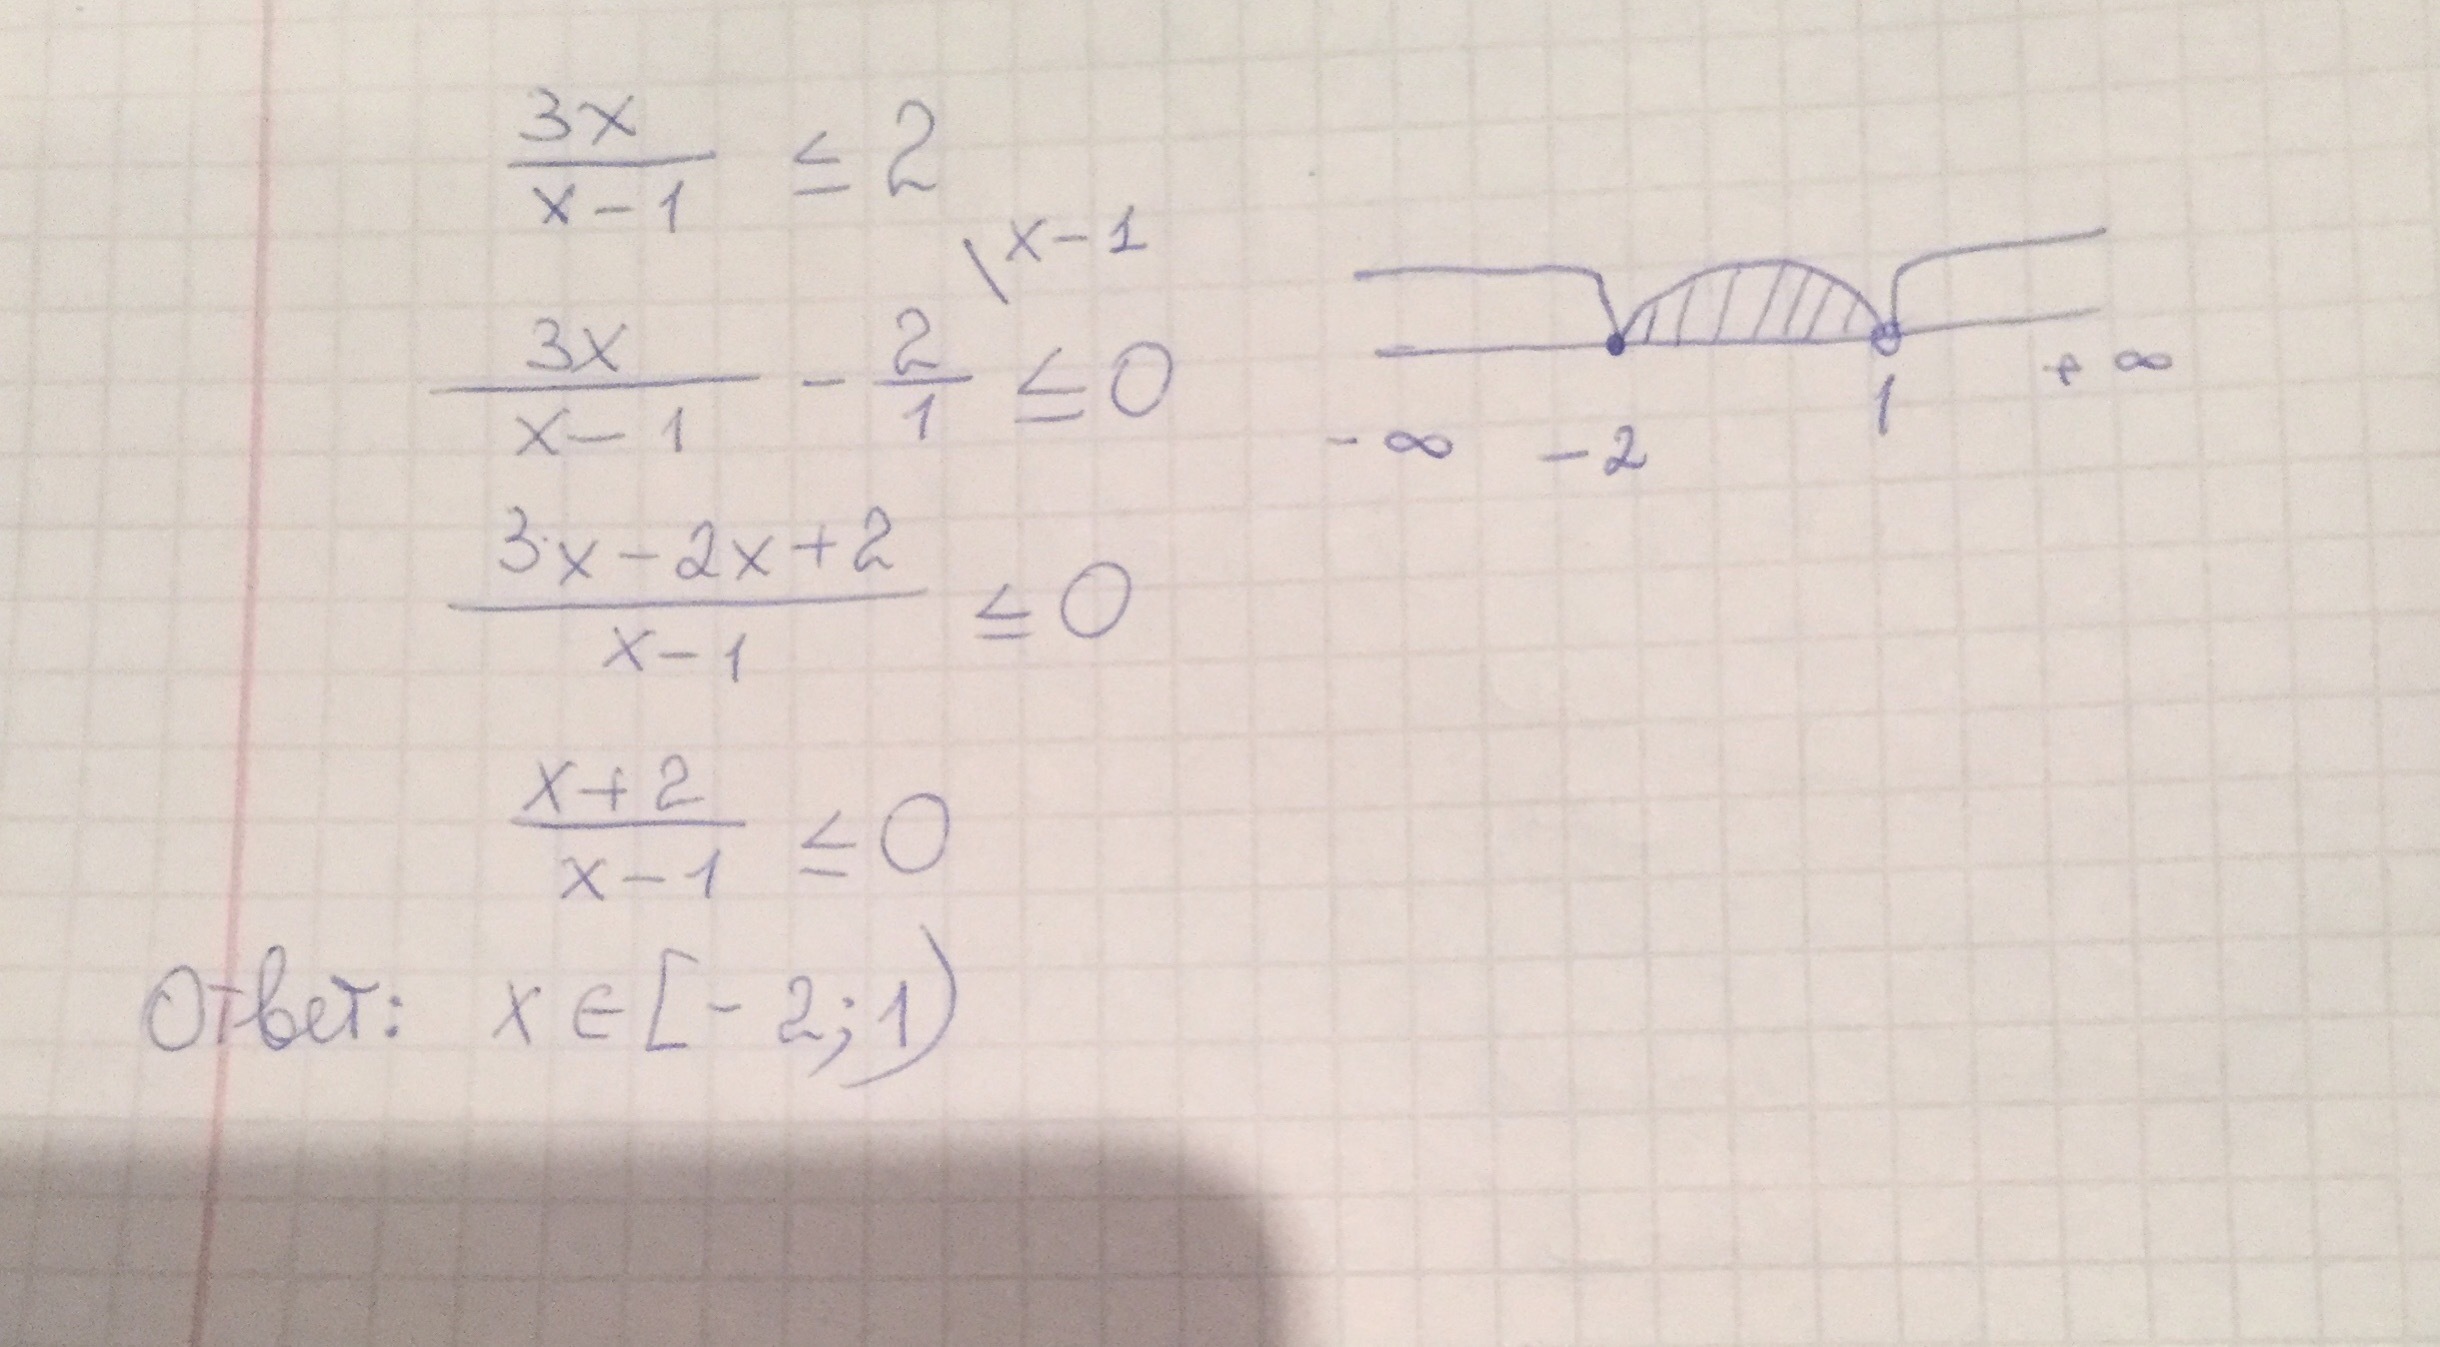 3x
x-1
≤ 2
\x-1
3x
x-1
- 2
1
≤ 0
3x-2x+2
x-1
≤ 0
x+2
x-1
≤ 0
Ответ: x∈[-2;1)
-∞ -2 1 +∞